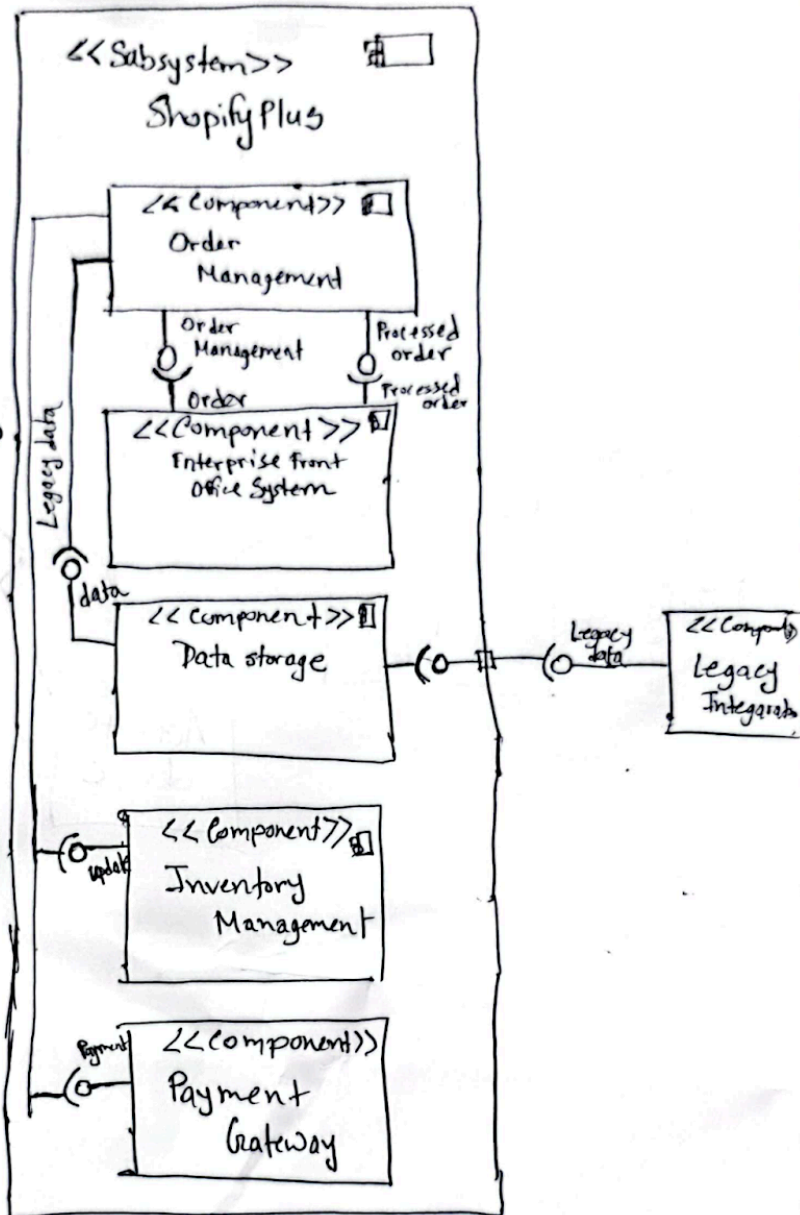 <<Sabsystem>>
Shopify Plus
<<Component>>
Order
Management
Order
Management
Processed
order
Order
Processed
order
<<Component>>
Enterprise Front
Office System
Legacy data
data
<<Component>>
Data storage
Legacy
data
<<Compont>>
Legacy
<<Component>>
update
Inventory
Management
Payment
<<Component>>
Payment
Gateway